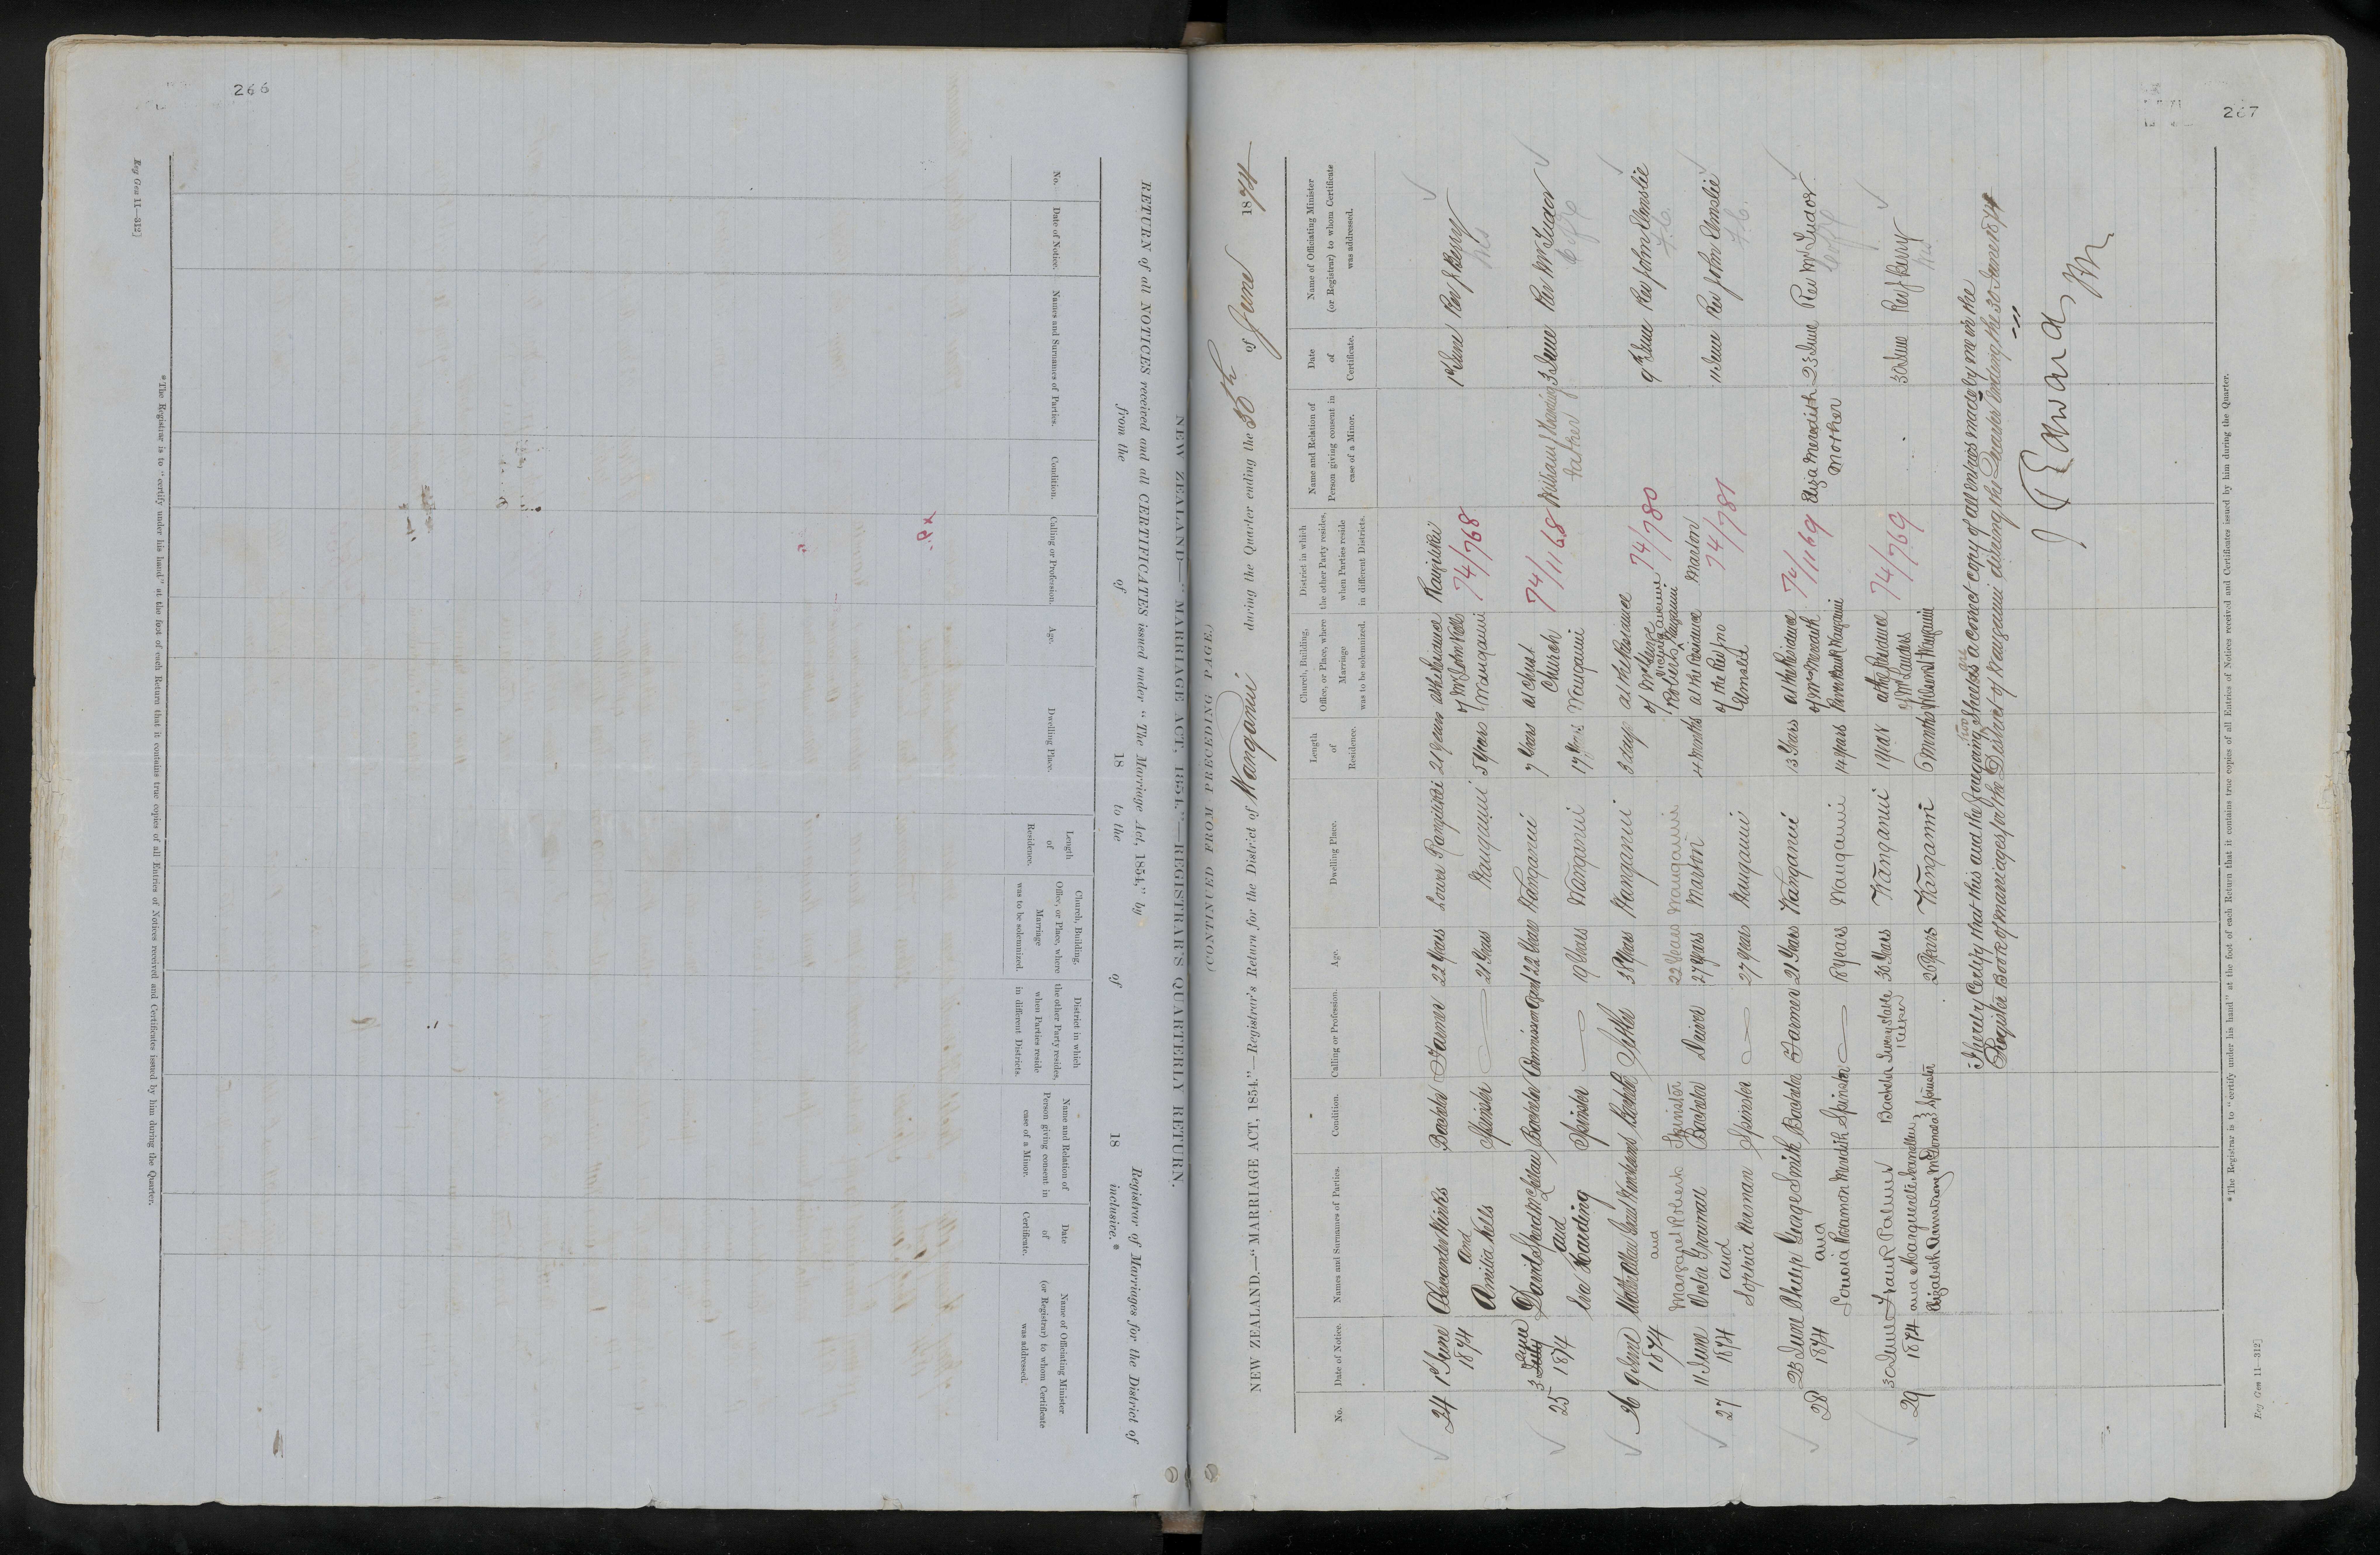 266
NEW ZEALAND.—"MARRIAGE ACT, 1854."—REGISTRAR'S QUARTERLY RETURN.
RETURN of all NOTICES received and all CERTIFICATES issued under "The Marriage Act, 1854," by
Registrar of Marriages for the District of
from the of 18 to the of 18 inclusive.*
No.
Date of Notice.
Names and Surnames of Parties.
Condition.
Calling or Profession.
Age.
Dwelling Place.
Length
of
Residence.
Church, Building,
Office, or Place, where
Marriage
was to be solemnized.
District in which
the other Party resides,
when Parties reside
in different Districts.
Name and Relation of
Person giving consent in
case of a Minor.
Date
of
Certificate.
Name of Officiating Minister
(or Registrar) to whom Certificate
was addressed.
* The Registrar is to "certify under his hand" at the foot of each Return that it contains true copies of all Entries of Notices received and Certificates issued by him during the Quarter.
Reg Gen 11—312]
267
(CONTINUED FROM PRECEDING PAGE.)
NEW ZEALAND.—"MARRIAGE ACT, 1854."—Registrar's Return for the District of Wanganui during the Quarter ending the 30th of June 1874
No.
Date of Notice.
Names and Surnames of Parties.
Condition.
Calling or Profession.
Age.
Dwelling Place.
Length
of
Residence.
Church, Building,
Office, or Place, where
Marriage
was to be solemnized.
District in which
the other Party resides,
when Parties reside
in different Districts.
Name and Relation of
Person giving consent in
case of a Minor.
Date
of
Certificate.
Name of Officiating Minister
(or Registrar) to whom Certificate
was addressed.
24 1st June Alexander Bachelor Farmer 22 Years Lower Rangitikei 21 years at the Residence Rangitikei 1st June Rev J Berry
1874 and of Mr John 74/768
Amilia Spinster 21 Years Wanganui 5 Years Wanganui
25 3 July June David Bachelor Commission Agent 22 Years Wanganui 7 Years at Christ 74/1168 William Harding 3 June Rev Mr Tudor
1874 and Church Father C of E
Eva Harding Spinster 19 Years Wanganui 17 Years Wanganui
26 9 June Bachelor Settler 38 Years Wanganui 3 days at the Residence 74/780 9th June Rev John Elmslie
1874 and of Mr
Margaret Roberts Spinster 22 Years Wanganui Roberts Victoria Avenue Wanganui
27 11 June Victor Bachelor Driver 27 Years Marton 4 months at the Residence Marton 11 June Rev John Elmslie
1874 and of the Rev Jno 74/781
Sophia Spinster 27 Years Wanganui Elmslie
28 23 June Philip George Smith Bachelor Farmer 21 Years Wanganui 13 Years at the Residence 74/1169 Eliza Meredith 23 June Rev Mr Tudor
1874 and of Mrs Meredith Mother C of E
Louisa Meredith Spinster 18 years Wanganui 14 years Wanganui
29 30 June Frank Palmer Bachelor Livery Stable Keeper 30 Years Wanganui 1 year at the Residence 74/769 30 June Rev J Berry
1874 and Marguerite of Mr
Elizabeth McDonald Spinster 20 Years Wanganui 6 months Wanganui
I hereby Certify that this and the foregoing two Sheets are a correct copy of all entries made by me in the
Register Book of marriages for the District of Wanganui during the Quarter ending the 30 June 1874
* The Registrar is to "certify under his hand" at the foot of each Return that it contains true copies of all Entries of Notices received and Certificates issued by him during the Quarter.
Reg Gen 11—312]